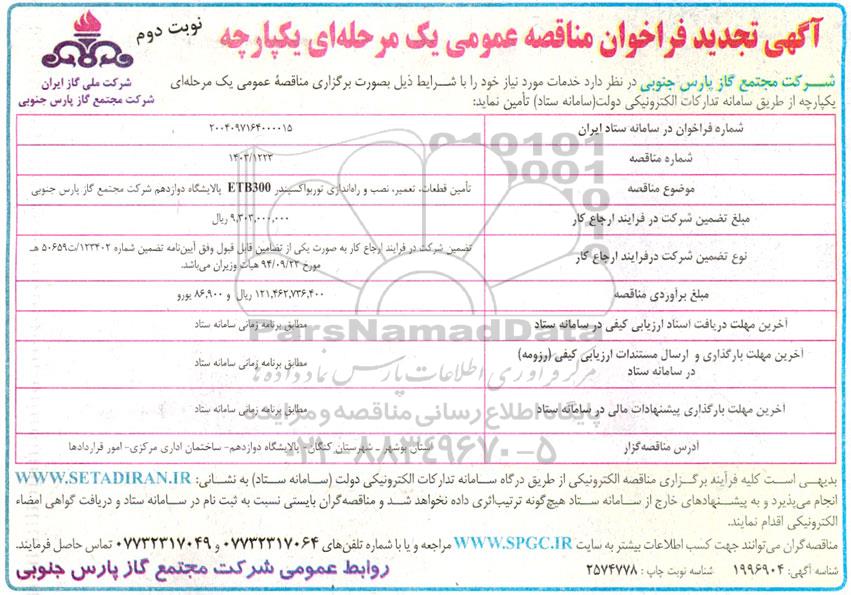 آگهی تجدید فراخوان مناقصه عمومی یک مرحله‌ای یکپارچه
نوبت دوم
شرکت ملی گاز ایران
شرکت مجتمع گاز پارس جنوبی
شرکت مجتمع گاز پارس جنوبی در نظر دارد خدمات مورد نیاز خود را با شرایط ذیل بصورت برگزاری مناقصۀ عمومی یک مرحله‌ای
یکپارچه از طریق سامانه تدارکات الکترونیکی دولت(سامانه ستاد) تأمین نماید:
شماره فراخوان در سامانه ستاد ایران ۲۰۰۴۰۹۷۱۶۴۰۰۰۰۱۵
شماره مناقصه ۱۴۰۳/۱۲۲۳
موضوع مناقصه تأمین قطعات، تعمیر، نصب و راه‌اندازی توربواکسپندر ETB300 پالایشگاه دوازدهم شرکت مجتمع گاز پارس جنوبی
مبلغ تضمین شرکت در فرایند ارجاع کار ۹,۳۰۳,۰۰۰,۰۰۰ ریال
نوع تضمین شرکت درفرایند ارجاع کار تضمین شرکت در فرایند ارجاع کار به صورت یکی از تضامین قابل قبول وفق آیین‌نامه تضمین شماره ۱۲۳۴۰۲/ت۵۰۶۵۹ هـ
مورخ ۹۴/۰۹/۲۳ هیات وزیران می‌باشد.
مبلغ برآوردی مناقصه ۱۲۱,۴۶۲,۷۳۶,۴۰۰ ریال و ۸۶,۹۰۰ یورو
آخرین مهلت دریافت اسناد ارزیابی کیفی در سامانه ستاد مطابق برنامه زمانی سامانه ستاد
آخرین مهلت بارگذاری و ارسال مستندات ارزیابی کیفی (رزومه)
در سامانه ستاد مطابق برنامه زمانی سامانه ستاد
آخرین مهلت بارگذاری پیشنهادات مالی در سامانه ستاد مطابق برنامه زمانی سامانه ستاد
آدرس مناقصه‌گزار استان بوشهر - شهرستان کنگان- پالایشگاه دوازدهم- ساختمان اداری مرکزی- امور قراردادها
ParsNamadData
مرکز فرآوری اطلاعات پارس نماد داده‌ها
پایگاه اطلاع رسانی مناقصه و مزایده
۰۲۱-۸۸۳۴۹۶۷۰-۵
بدیهی است کلیه فرآیند برگزاری مناقصه الکترونیکی از طریق درگاه سامانه تدارکات الکترونیکی دولت (سامانه ستاد) به نشانی: WWW.SETADIRAN.IR
انجام می‌پذیرد و به پیشنهادهای خارج از سامانه ستاد هیچ‌گونه ترتیب‌اثری داده نخواهد شد و مناقصه‌گران بایستی نسبت به ثبت نام در سامانه ستاد و دریافت گواهی امضاء
الکترونیکی اقدام نمایند.
مناقصه‌گران می‌توانند جهت کسب اطلاعات بیشتر به سایت WWW.SPGC.IR مراجعه و یا با شماره تلفن‌های ۰۷۷۳۲۳۱۷۰۶۴ و ۰۷۷۳۲۳۱۷۰۴۹ تماس حاصل فرمایند.
شناسه آگهی: ۱۹۹۶۹۰۴ شناسه نوبت چاپ: ۲۵۷۴۷۷۸
روابط عمومی شرکت مجتمع گاز پارس جنوبی